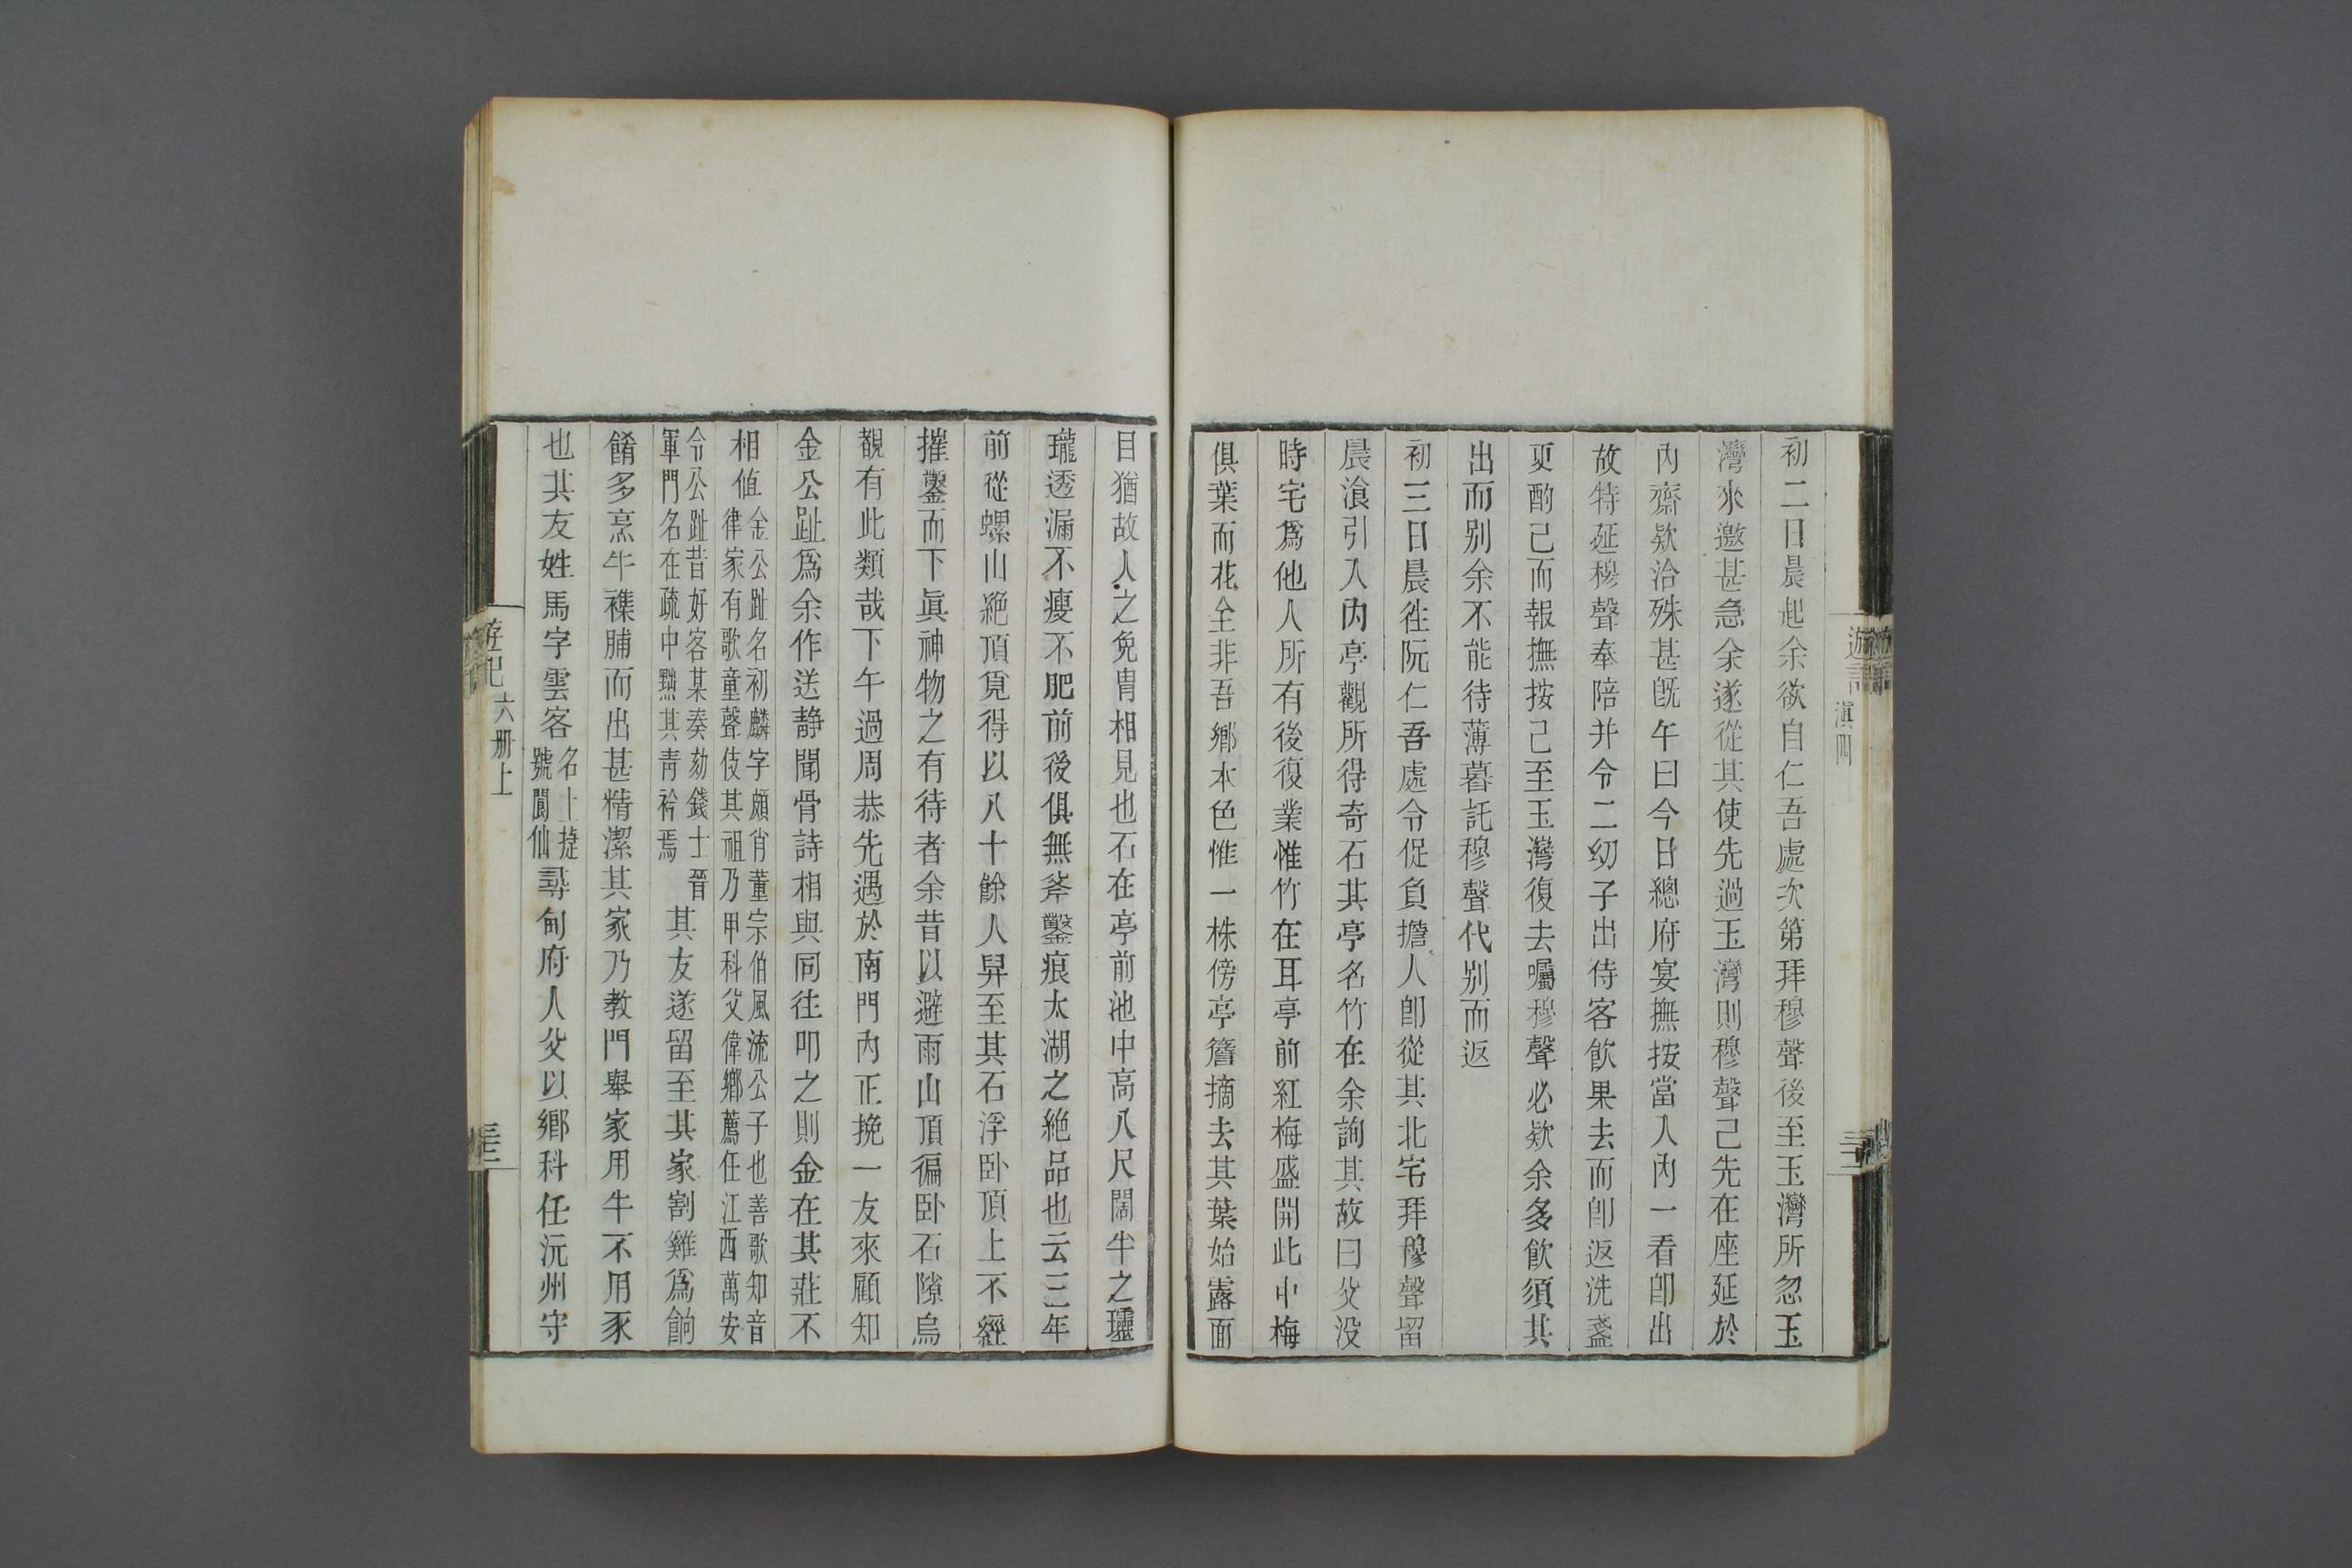 初二日晨起余欲自仁吾處次第拜穆聲後至玉灣所忽玉
灣來邀甚急余遂從其使先過玉灣則穆聲己先在座延於
內齋欵洽殊甚旣午曰今日總府宴撫按當入內一看卽出
故特延穆聲奉陪并令二幼子出侍客飲果去而卽返洗盞
更酌己而報撫按己至玉灣復去囑穆聲必欵余多飲須其
出而别余不能待薄暮託穆聲代别而返
初三日晨徃阮仁吾處令促負擔人卽從其北宅拜穆聲留
晨湌引入內亭觀所得奇石其亭名竹在余詢其故曰父没
時宅爲他人所有後復業惟竹在耳亭前紅梅盛開此中梅
俱葉而花全非吾鄉本色惟一株傍亭簷摘去其葉始露面
目猶故人之免胄相見也石在亭前池中高八尺闊半之瓏
瓏透漏不瘦不肥前後俱無斧鑿痕太湖之絶品也云三年
前從螺山絶頂覓得以八十餘人舁至其石浮卧頂上不經
摧鑿而下眞神物之有待者余昔以避雨山頂徧卧石隙烏
覩有此類哉下午過周恭先遇於南門內正挽一友來顧知
金公趾爲余作送静聞骨詩相與同往叩之則金在其莊不
相值金公趾名初麟字頗肖董宗伯風流公子也善歌知音
律家有歌童聲伎其祖乃甲科父偉鄉薦任江西萬安
令公趾昔好客某奏劾錢士晉
軍門名在疏中黜其靑衿焉其友遂留至其家割雞爲餉
餚多烹牛襍脯而出甚精潔其家乃教門舉家用牛不用豕
也其友姓馬字雲客名上捷
號閬仙尋甸府人父以鄉科任沅州守
遊記
滇四
遊記
六册上